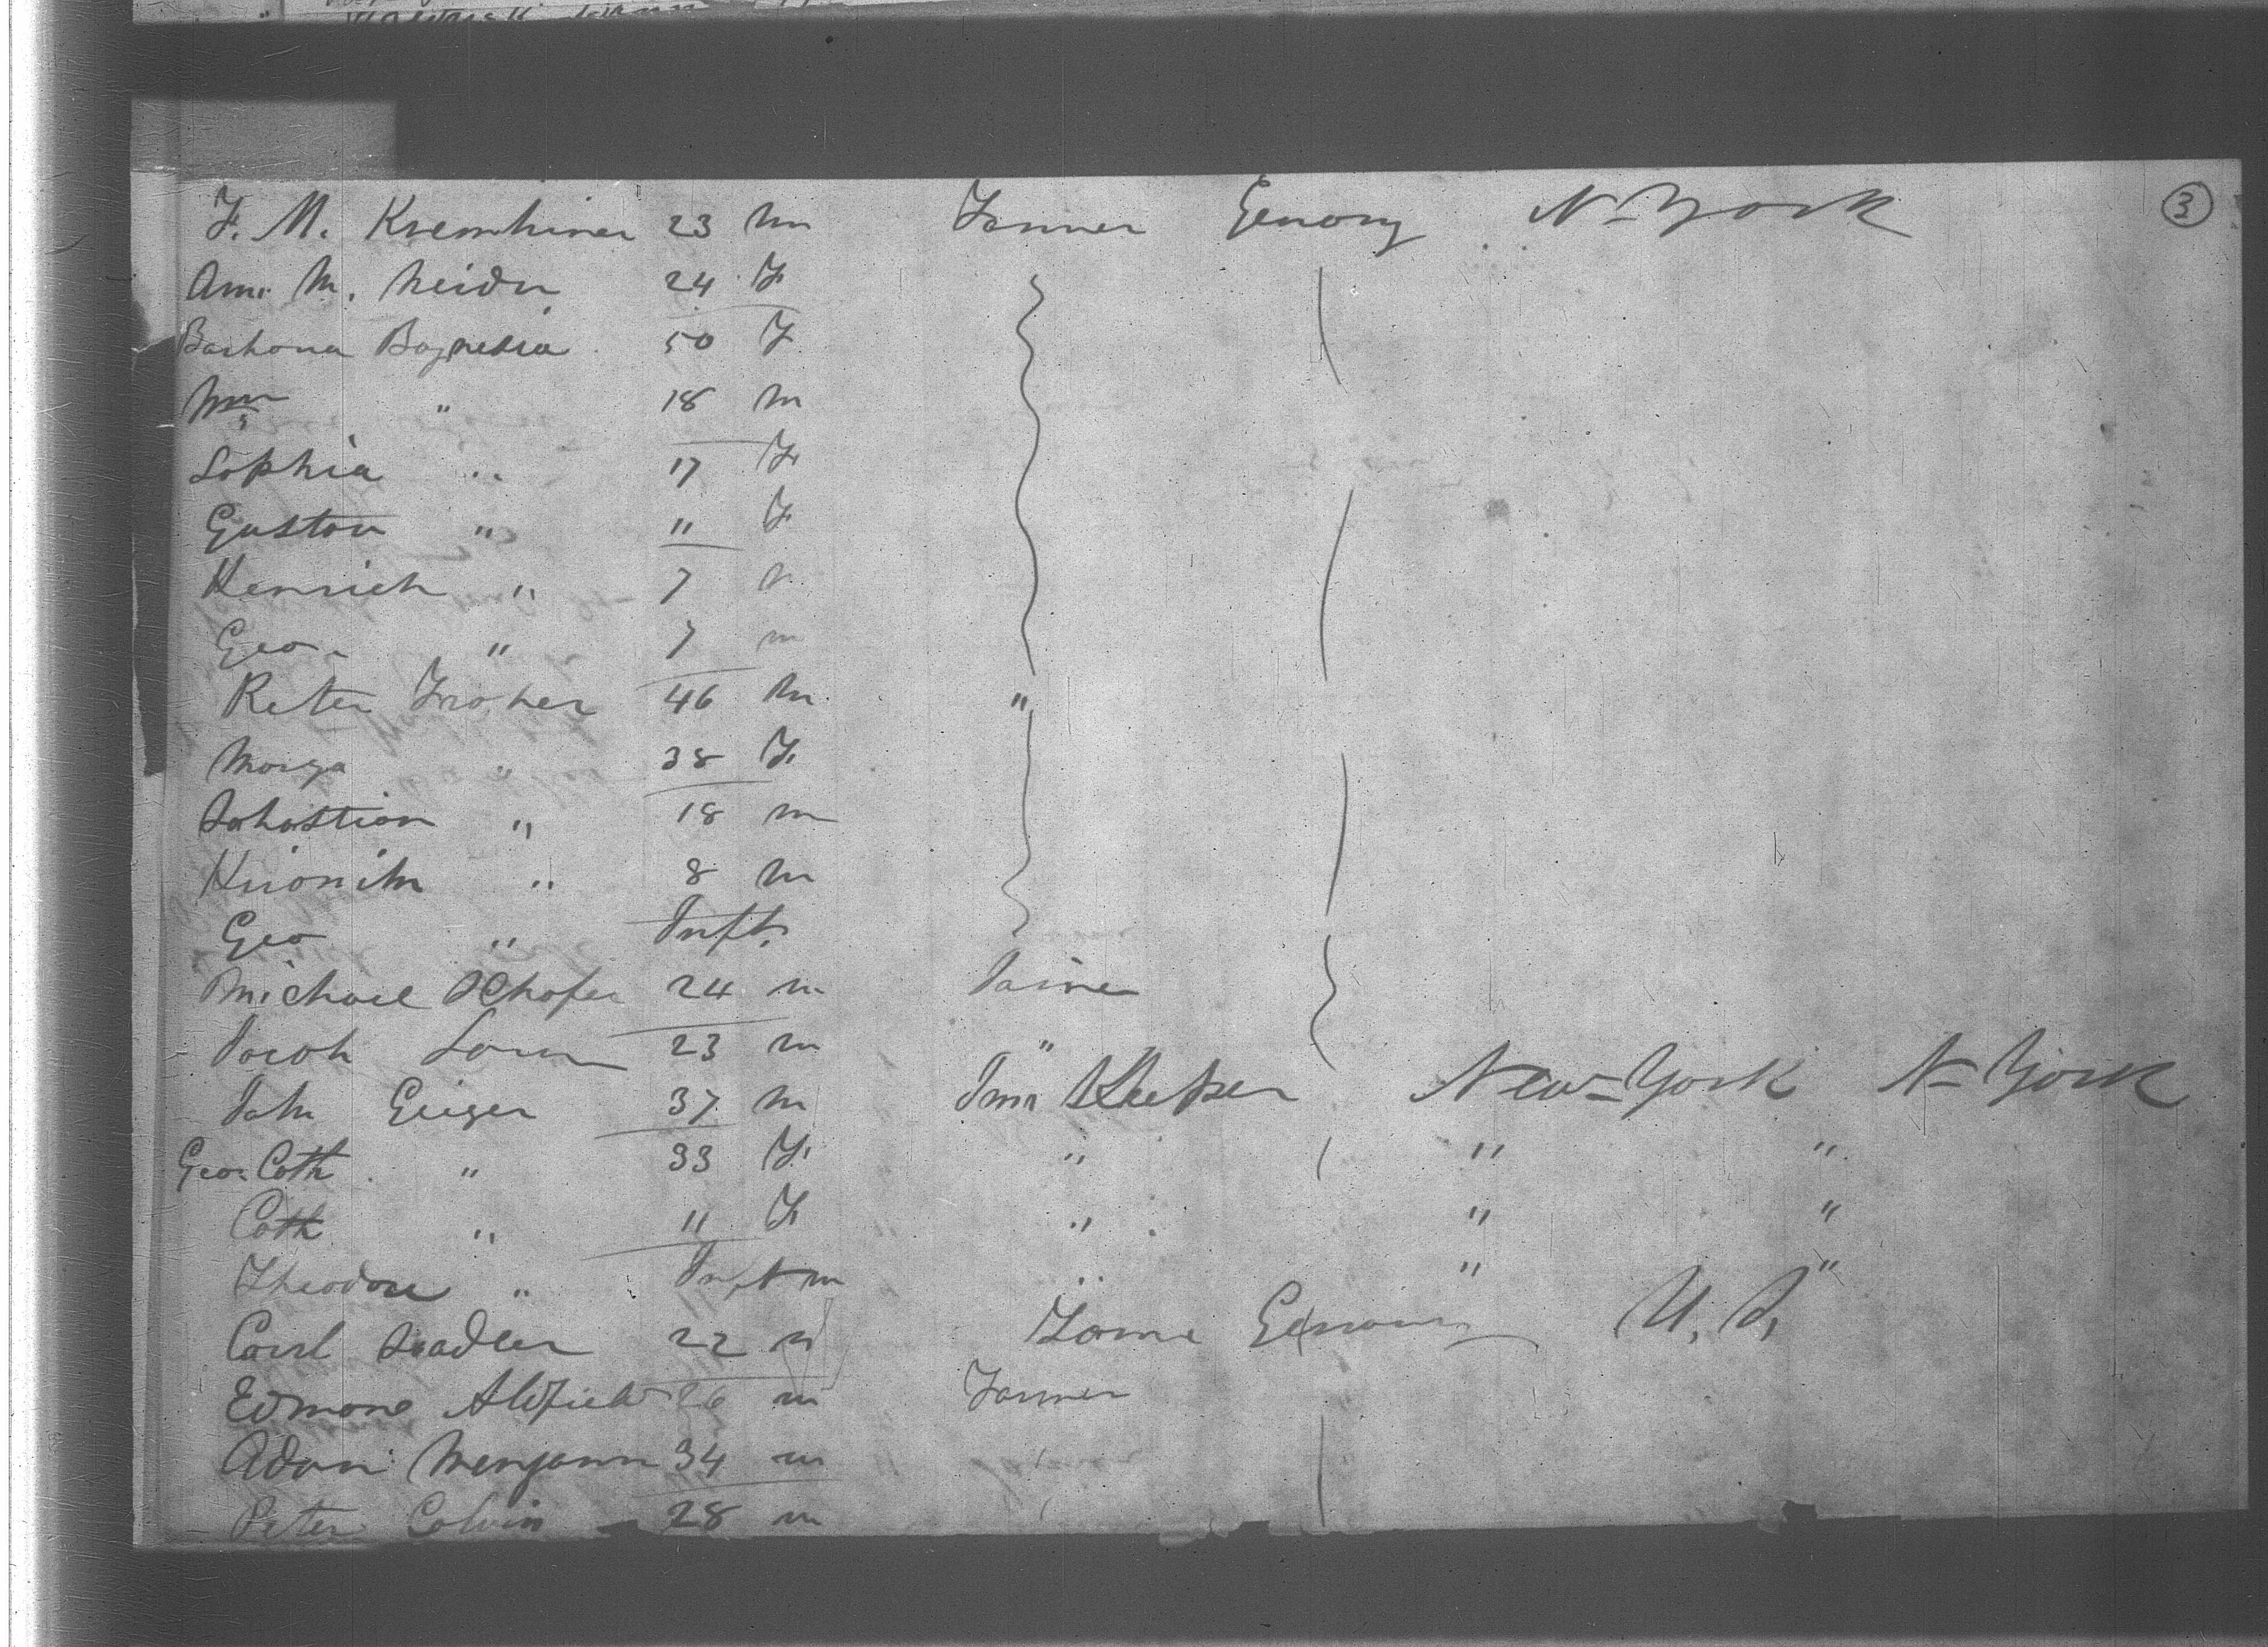 3
F. M. Kremhiner 23 m Farmer Germany N-York
Ann M. Neidr 24 F
Barbara Bagnesia 50 F
Wm " 18 m
Sophia " 17 F
Gustav " 11 F
Henrich " 7
Geo. " 7 m
Peter Froher 46 m "
Marga " 38 F
Sabastian " 18 m
Hironim " 8 m
Geo " Inft.
Michael Schafer 24 m
Jacob 23 m "
John Geiger 37 m Inn Keeper New-York N-York
Geo. Cath " 33 F " " "
Cath " 11 F " " "
Theodore " Inft m " " "
Carl Sadler 22 m Germany U. S.
Edmond Aldfield 26 m Farmer
Adam Menjann 34 m
Peter Colvin 28 m